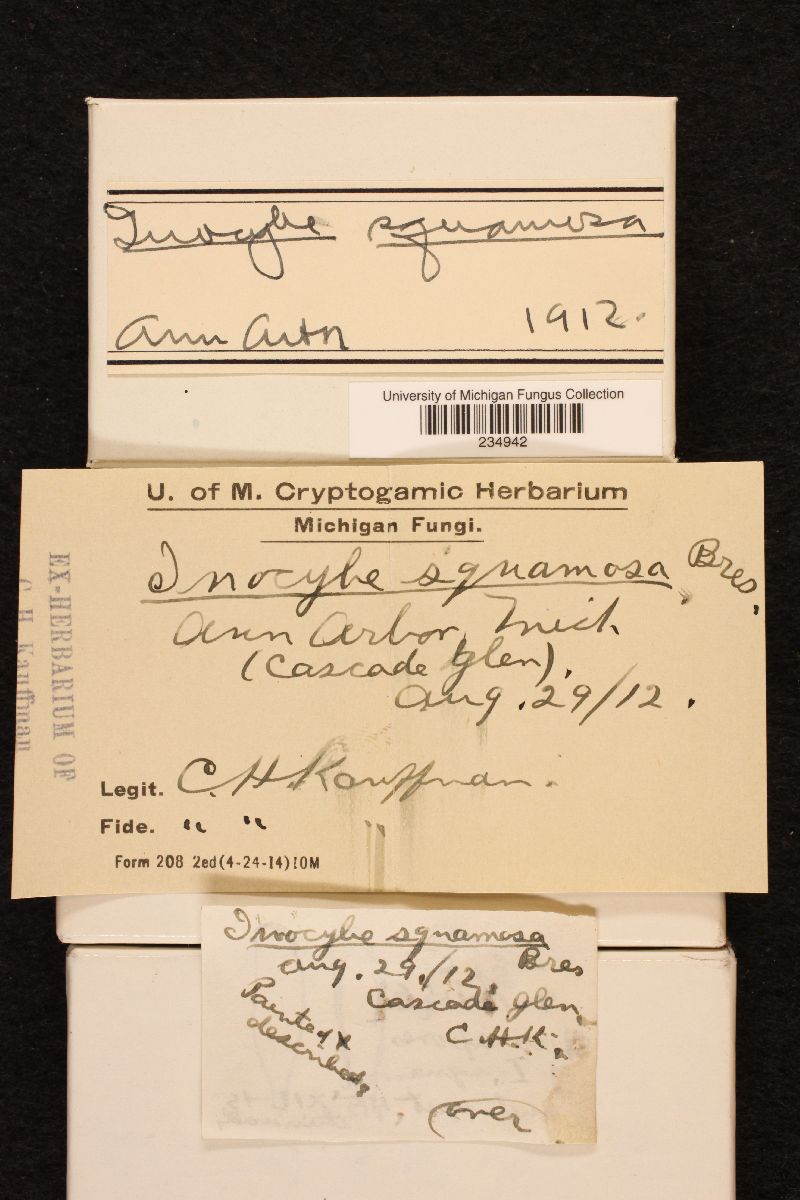 Inocybe squamosa
Ann Arbor 1912.
University of Michigan Fungus Collection
234942
U. of M. Cryptogamic Herbarium
Michigan Fungi.
Inocybe squamosa, Bres.
Ann Arbor, Mich.
(Cascade glen),
Aug. 29/12.
Legit. C. H. Kauffman.
Fide. " " "
Form 208 2ed(4-24-14)10M
EX-HERBARIUM OF
C. H. Kauffman
Inocybe squamosa
Bres
Aug. 29./12.
Cascade glen.
C.H.K.
Painted &
described.
over